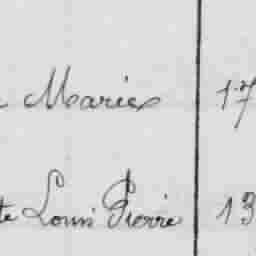 Maries 17
te Louis Pierre 13